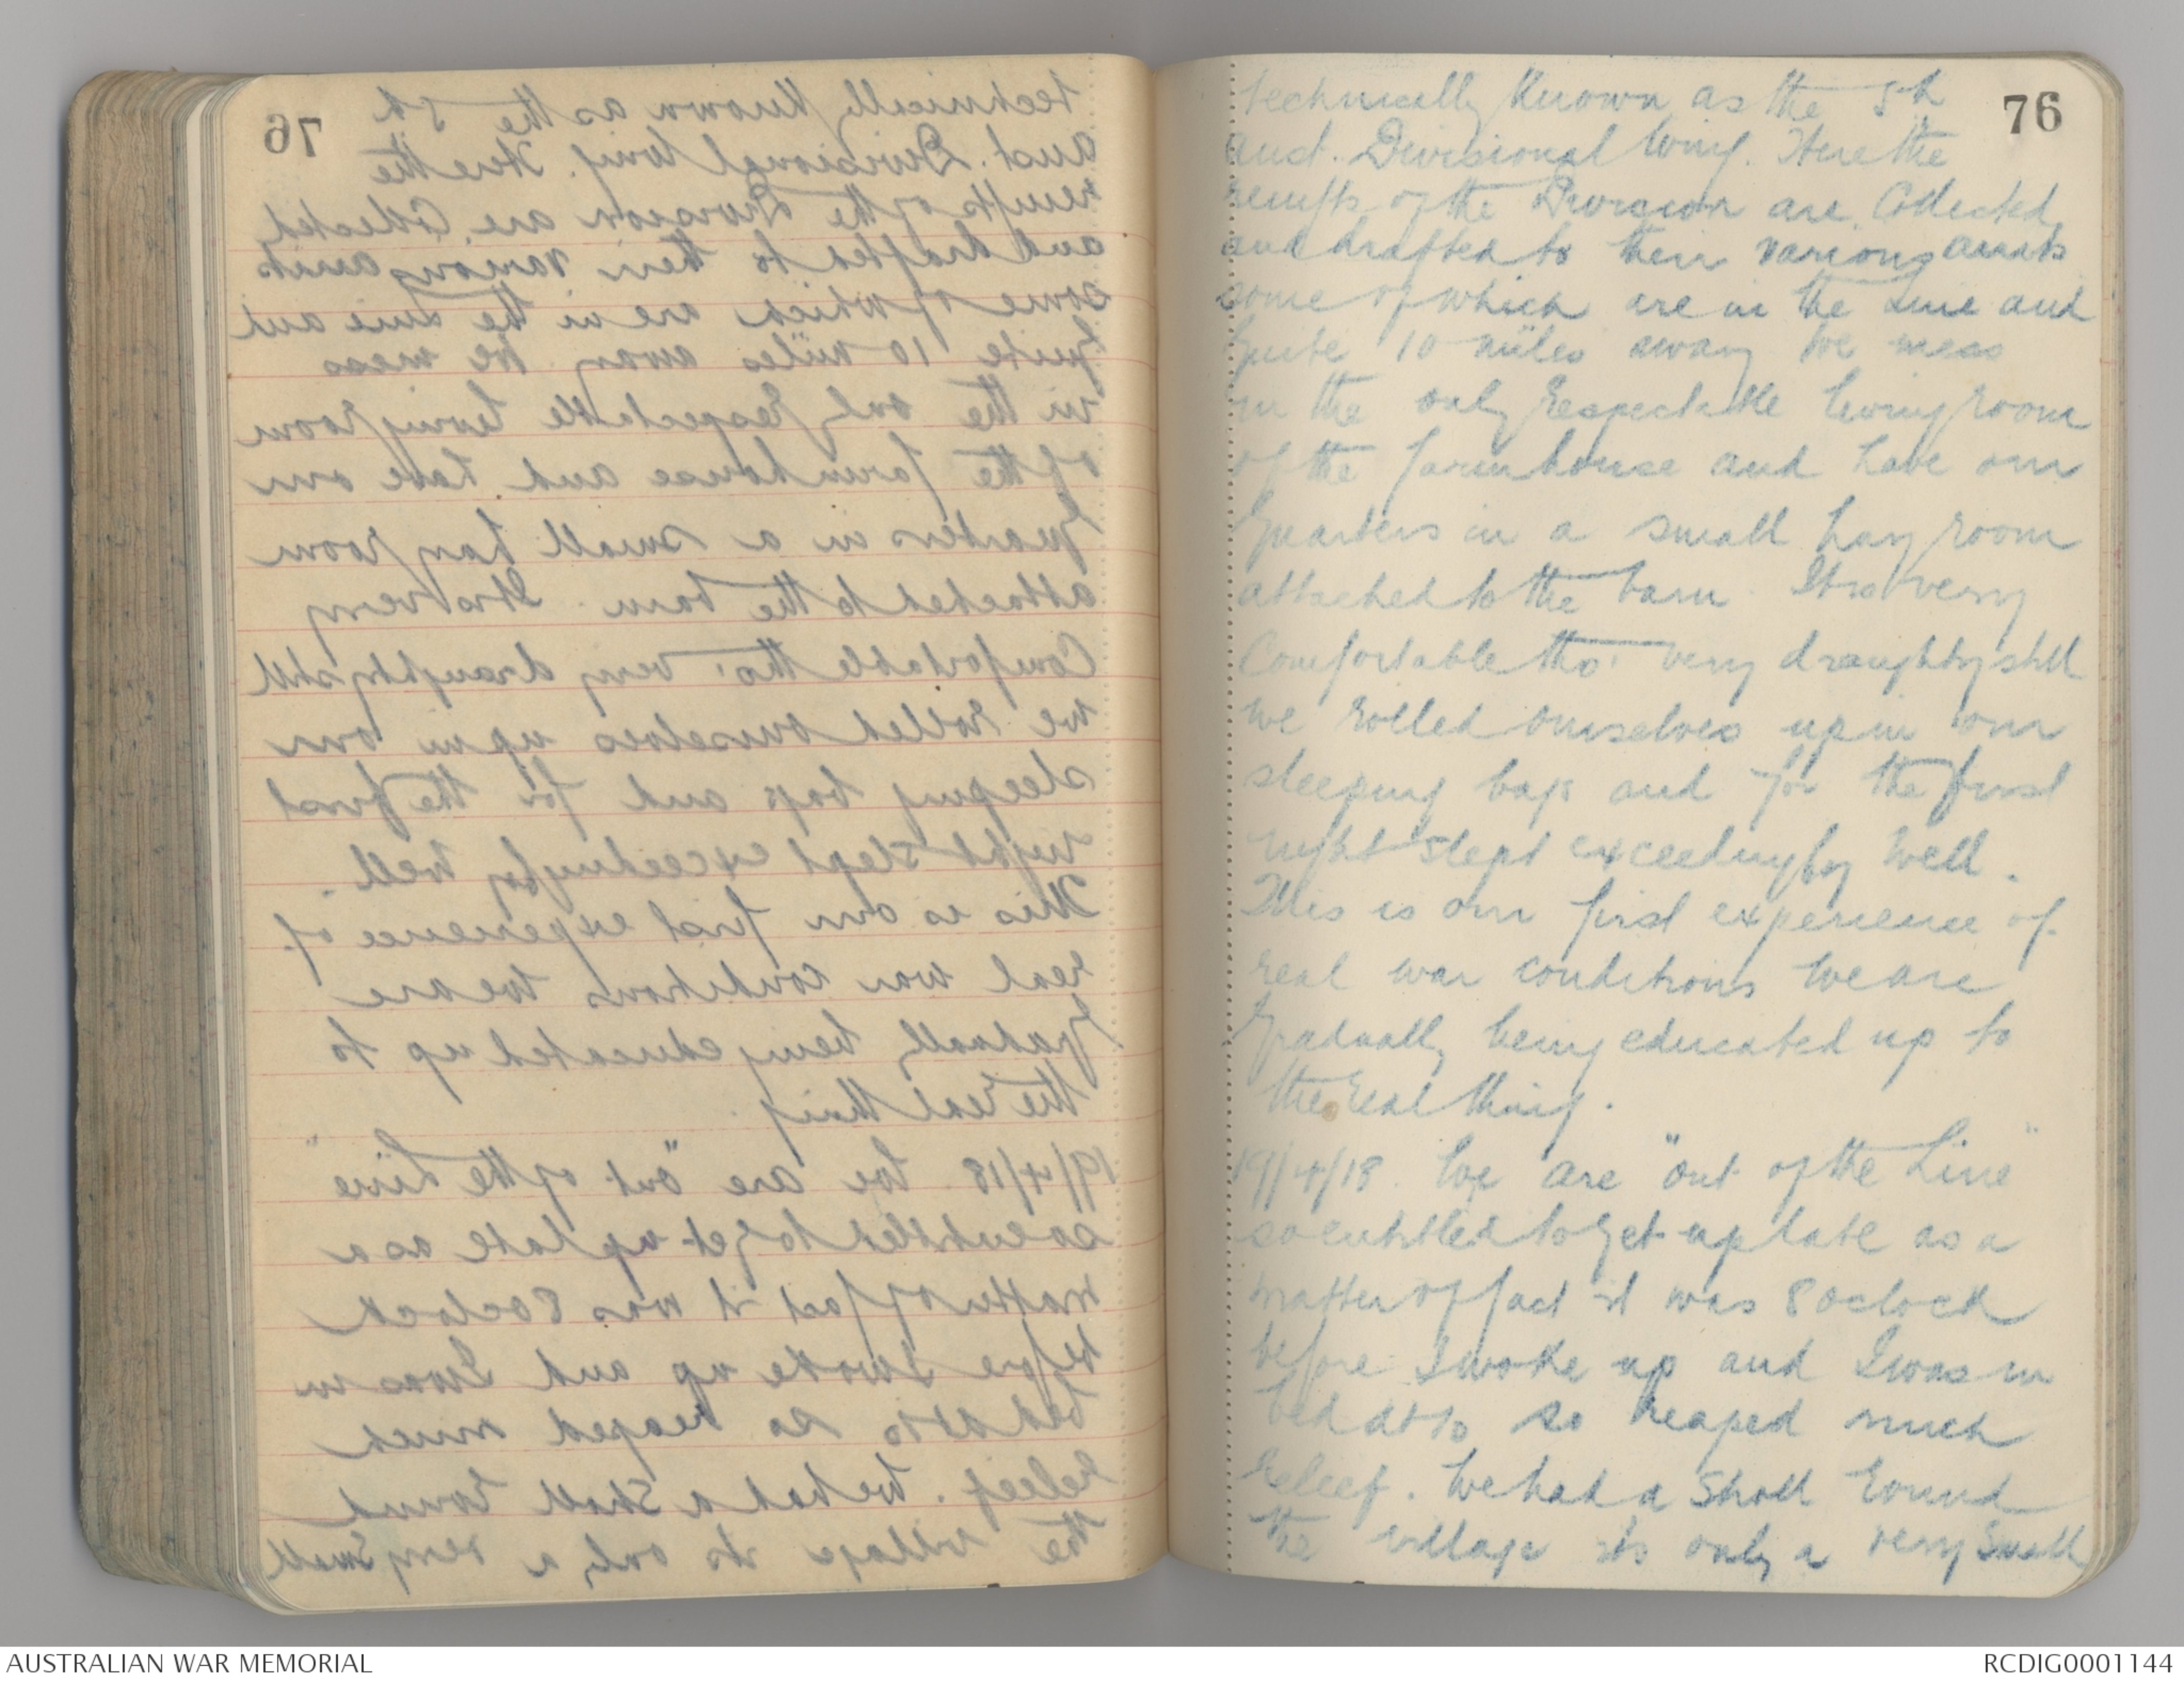 76
technically known as the 5th
Aust. Divisional Wing. Here the
reinfts of the Division are collected
and drafted to their various units
some of which are in the Line and
quite 10 miles away We mess
in the only respectable living room
of the farmhouse and have our
quarters in a small hay room
attached to the barn. Its very
Comfortable tho' very draughty still
we rolled ourselves up in our
sleeping bags and for the first
night slept exceedingly well.
This is our first experience of
real war conditions We are
gradually being educated up to
the real thing.
19/4/18. We are "out of the Line"
so entitled to get up late as a
matter of fact it was 8 oclock
before I woke up and I was in
bed at 10 so reaped much
releef. We had a stroll round
the village its only a very small
AUSTRALIAN WAR MEMORIAL
RCDIG0001144